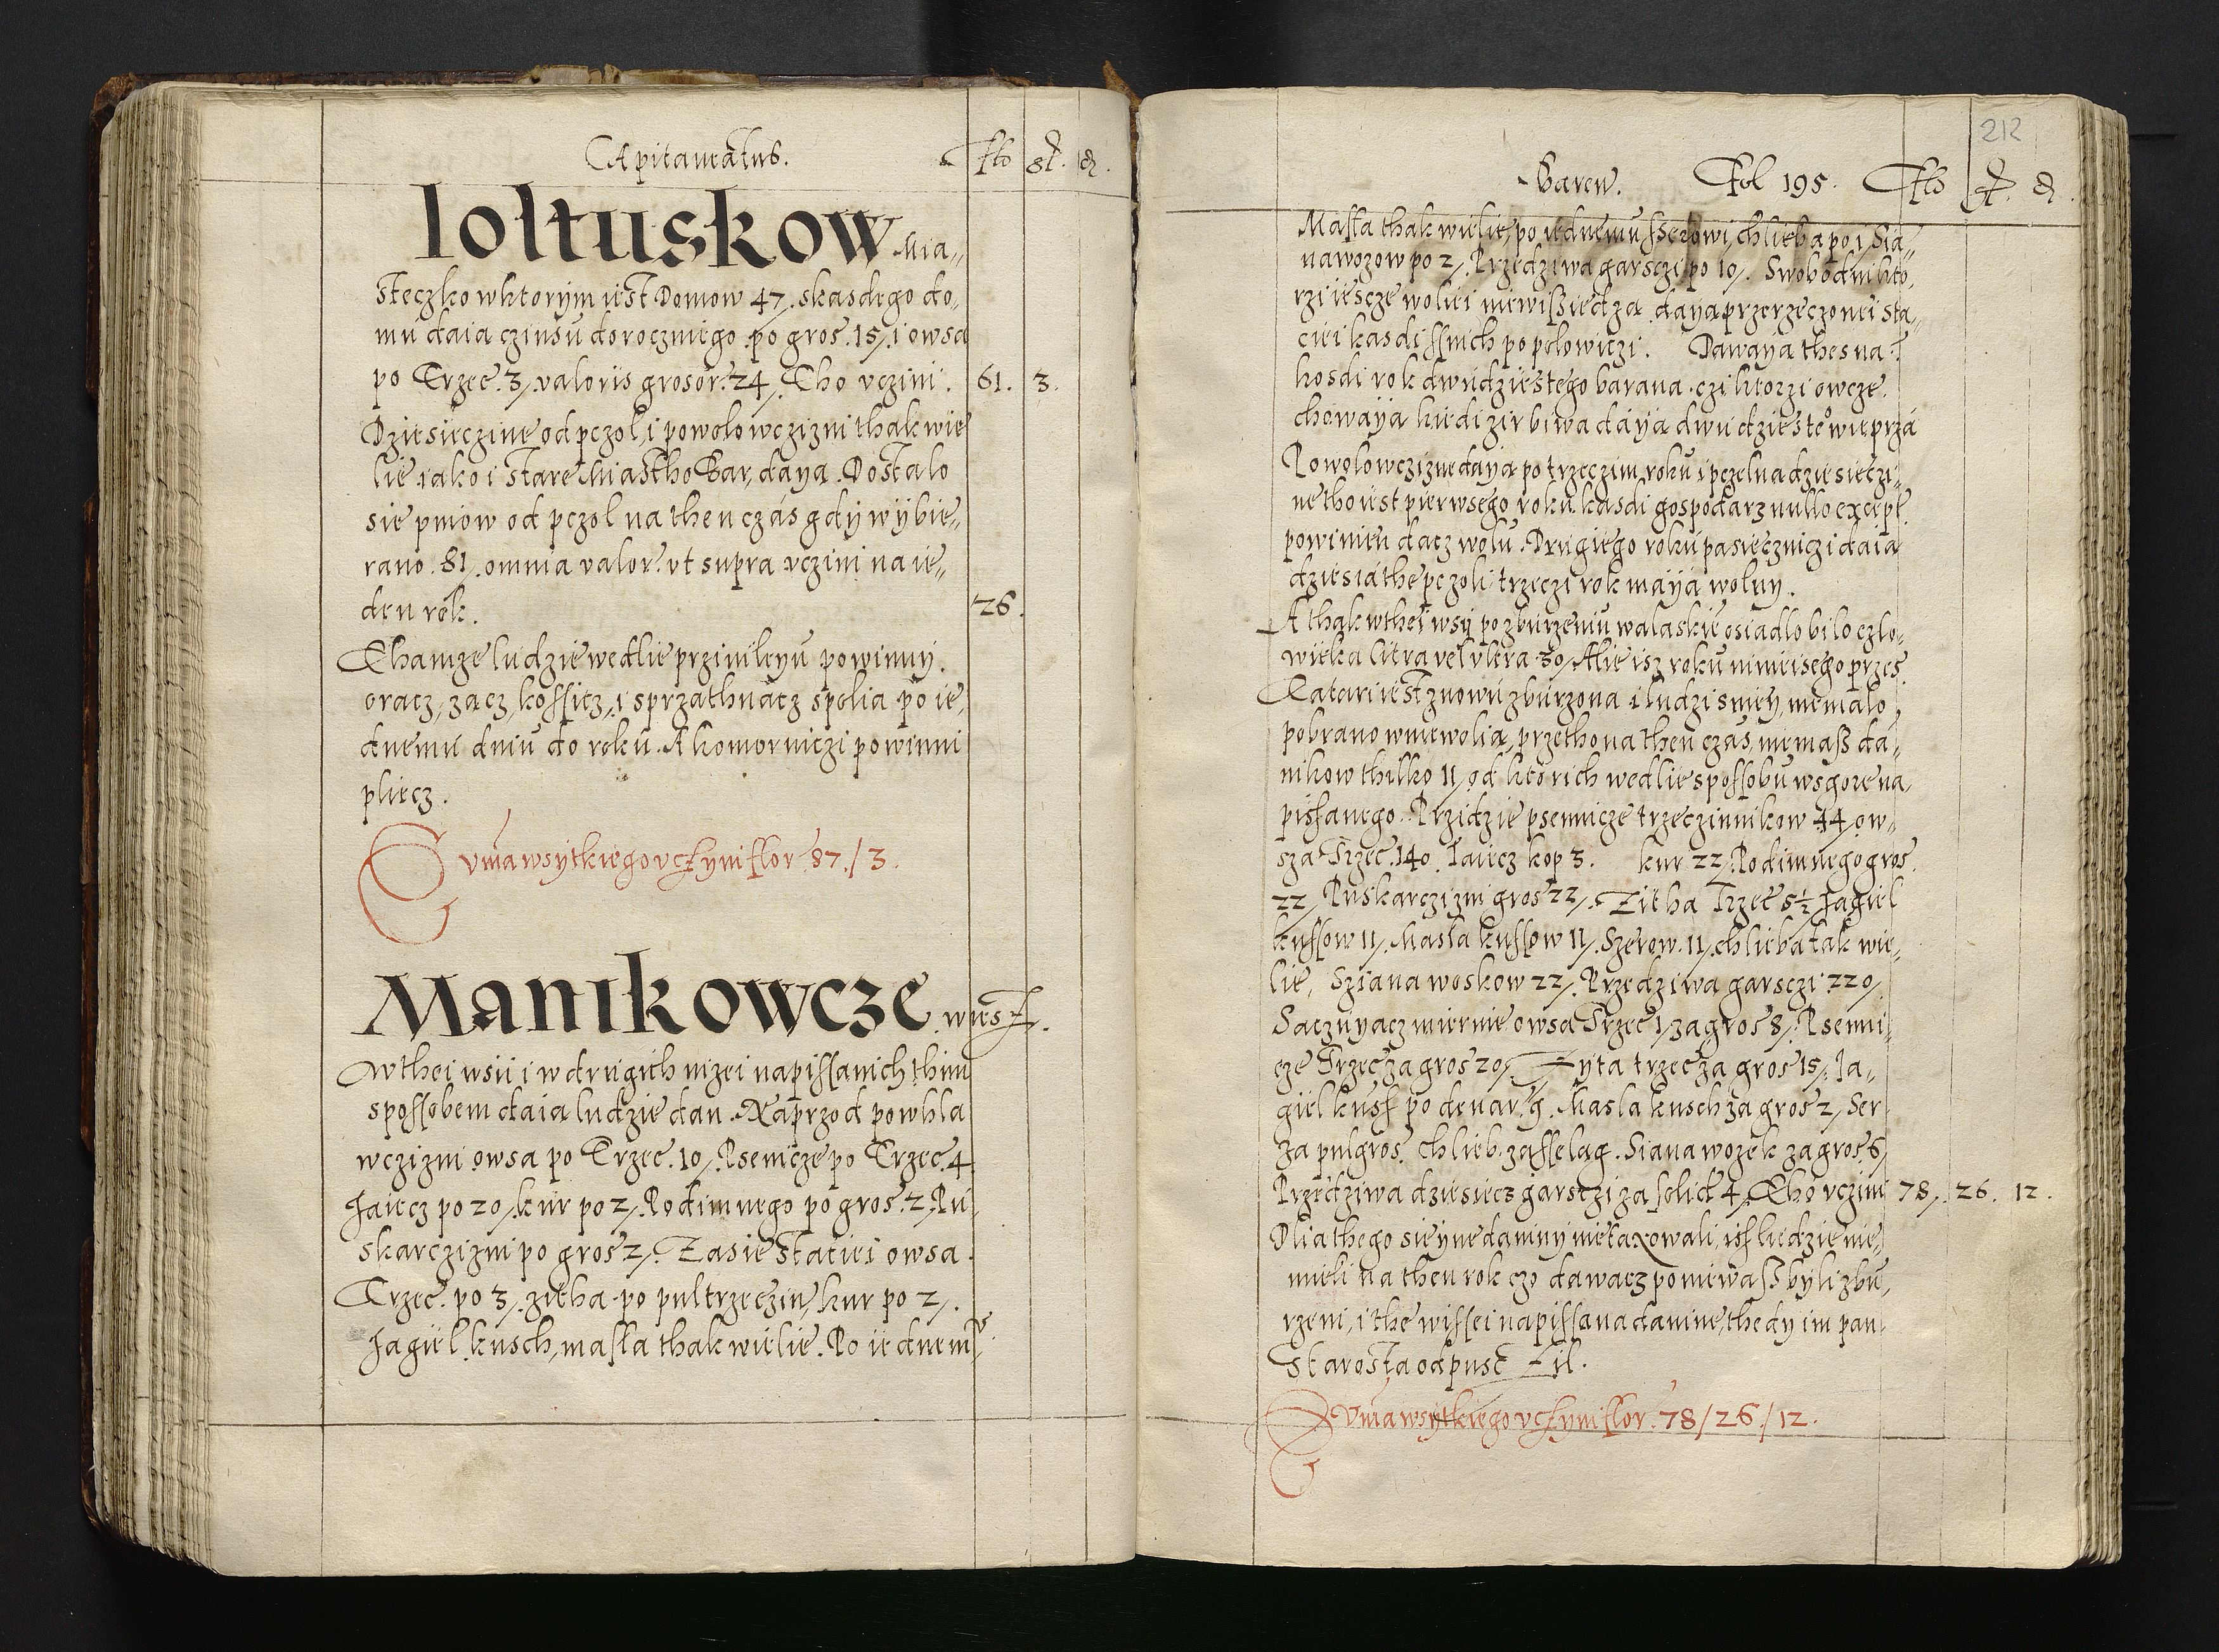 Capitaneatus. flo gr. d.
Ioltuskow Mia-
steczko wktorym iest Domow 47. skasdego do-
mu daia czinsu doroczniego po gros. 15/. i owsa
po Trzec. 3/. valoris grosor. 24/. Tho vczini. 61. 3.
Dziesieczine od pczol, i powolowczizni thak wie
lie iako i stare Miastho Bar, daya. Dostalo
sie pniow od pczol na then czas gdy wybie-
rano. 81/. omnia valor. vt supra vczini na ie-
den rok. 26.
Thamze ludzie wedlie prziuileyu powinny.
oracz, zacz, kossicz, i sprzathnacz spolia po ie-
dnemu dniu do roku. A komorniczi powinni
pliecz.
Sum̃a wsytkiego vczyni flor. 87./3.
Manikowcze wies z.
W thei wsii i w drugich nizei napissanich thim
spossobem daia ludzie dan. Naprzod powhla
wczizni owsa po Trzec. 10/. Psenicze po Trzec. 4
Jaiecz po 20/. kur po 2/. Podimnego po gros. 2/. Pu-
skarczizni po gros 2/. Zasie staciei owsa.
Trzec. po 3/. zitha po pultrzeczin/ kur po 2/.
Jagiel kusch, masla thak wielie. Po iednem̃u
212
Baren. Fol 195. Flo gr. d.
Masla thak wielie, po iednemu sserowi, chlieba po 1, Sia-
na wozow po 2/. Przedziwa garsczi po 10/. Swobodni kto-
rzi iescze woliei niewissiedza, daya przerzeczonei sta-
ciei kasdi ssnich po polowiczi. Dawaya thes na
kosdi rok dwudziestego barana czi ktorzi owcze.
chowaya kiedi zir biwa daya dwudziestº wieprza
Powolowczizne daya po trzeczim roku i pczelna dziesieczi-
ne tho iest pierwsego roku kasdi gospodarz nullo except.
powinien dacz wolu. Drugiego roku pasieczniczi daia
dziesiathe pczoli: trzeczi rok maya wolny.
A thak wthei wsy po zburzeniu walaskie osiadlo bilo czlo-
wieka citra vel vltra 30/. Alie isz roku ninieisego przes
Tatari iest znowu zburzona i ludzi sniey niemalo
pobrano w niewolia, przetho na then czas niemass da-
nikow thilko 11/ od ktorich wedlie spossobu wsgore na-
pissanego. Przidzie psenicze trzeczinnikow 44 ow-
sza Trzec. 140. Jaiecz kop 3. kur 22/. Podimnego gros.
22/. Puskarczizni gros 22/. Zitha Trzec 5½ Jagiel
kussow 11/. Masla kussow 11/. Szerow. 11/. chlieba tak wie-
lie, Sziana woskow 22/. Przedziwa garsczi 220/
Saczuyacz miernie owsa Trzec 1/ za gros 8/. Psenni-
cze Trzec za gros 20/. Zyta trzec za gros 15/. Ja-
giel kusf po denar. 9. Masla kusch za gros 2/ Ser
za pulgros. chlieb za sselag. Siana wozek za gros 6/
Przedziwa dziesiecz garsczi za solid 4/. Tho vczini 78/. 26. 12.
Dlia thego sie yne daniny nie taxowali, isz liudzie nie-
mieli na then rok czo dawacz poniewasz byli zbu-
rzeni, i the wissei napissana danine, thedy im pan
Starosta odpuscził.
Sum̃a wsytkiego vczyni flor. 78/26/12.